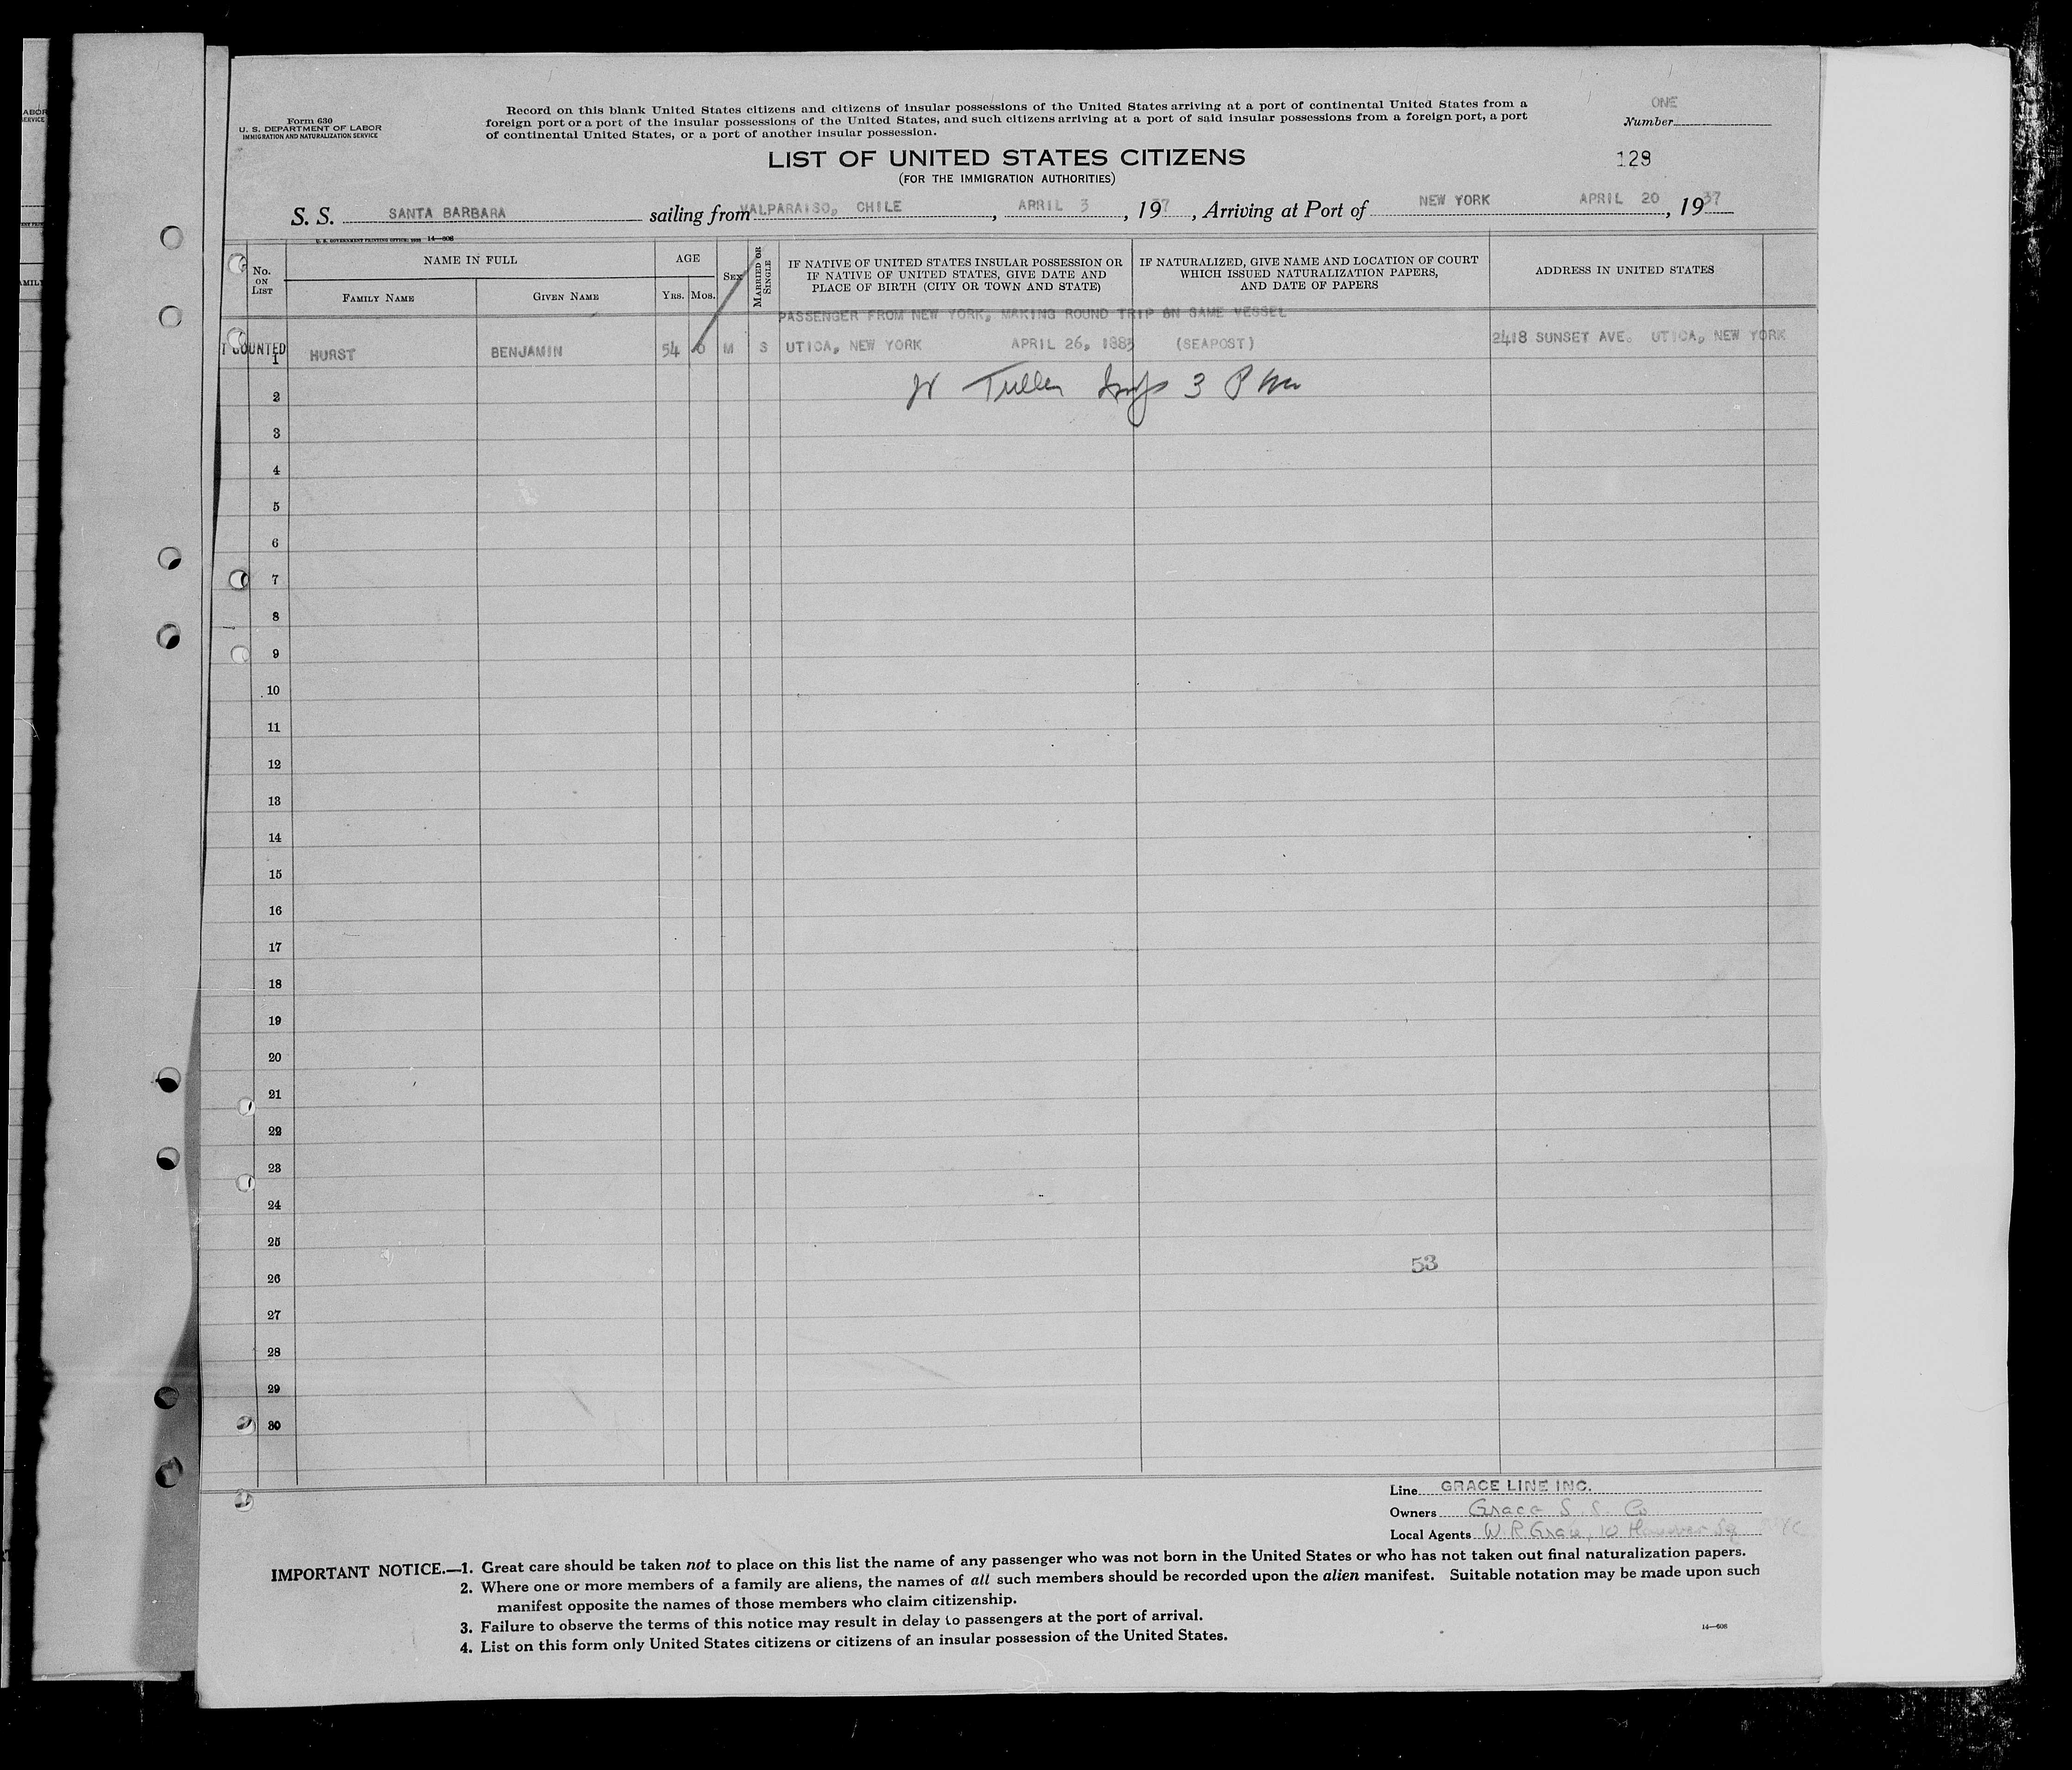 Form 630
U. S. DEPARTMENT OF LABOR
IMMIGRATION AND NATURALIZATION SERVICE
Record on this blank United States citizens and citizens of insular possessions of the United States arriving at a port of continental United States from a
foreign port or a port of the insular possessions of the United States, and such citizens arriving at a port of said insular possessions from a foreign port, a port
of continental United States, or a port of another insular possession.
ONE
Number
LIST OF UNITED STATES CITIZENS
(FOR THE IMMIGRATION AUTHORITIES)
128
S. S. SANTA BARBARA sailing from VALPARAISO, CHILE, APRIL 3, 1937, Arriving at Port of NEW YORK APRIL 20, 1937
U. S. GOVERNMENT PRINTING OFFICE: 14—608
No. ON LIST
NAME IN FULL
FAMILY NAME
GIVEN NAME
AGE
YRS. MOS.
SEX
MARRIED OR SINGLE
IF NATIVE OF UNITED STATES INSULAR POSSESSION OR
IF NATIVE OF UNITED STATES, GIVE DATE AND
PLACE OF BIRTH (CITY OR TOWN AND STATE)
IF NATURALIZED, GIVE NAME AND LOCATION OF COURT
WHICH ISSUED NATURALIZATION PAPERS,
AND DATE OF PAPERS
ADDRESS IN UNITED STATES
PASSENGER FROM NEW YORK, MAKING ROUND TRIP ON SAME VESSEL
T COUNTED
1 HURST BENJAMIN 54 0 M S UTICA, NEW YORK APRIL 26, 1883 (SEAPOST) 2418 SUNSET AVE. UTICA, NEW YORK
2 3
3
4
5
6
7
8
9
10
11
12
13
14
15
16
17
18
19
20
21
22
23
24
25
53
26
27
28
29
30
Line GRACE LINE INC.
Owners Grace S. S. Co
Local Agents W. R. Grace, 10 Hanover Sq
IMPORTANT NOTICE.—1. Great care should be taken not to place on this list the name of any passenger who was not born in the United States or who has not taken out final naturalization papers.
2. Where one or more members of a family are aliens, the names of all such members should be recorded upon the alien manifest. Suitable notation may be made upon such
manifest opposite the names of those members who claim citizenship.
3. Failure to observe the terms of this notice may result in delay to passengers at the port of arrival.
4. List on this form only United States citizens or citizens of an insular possession of the United States.
14—608